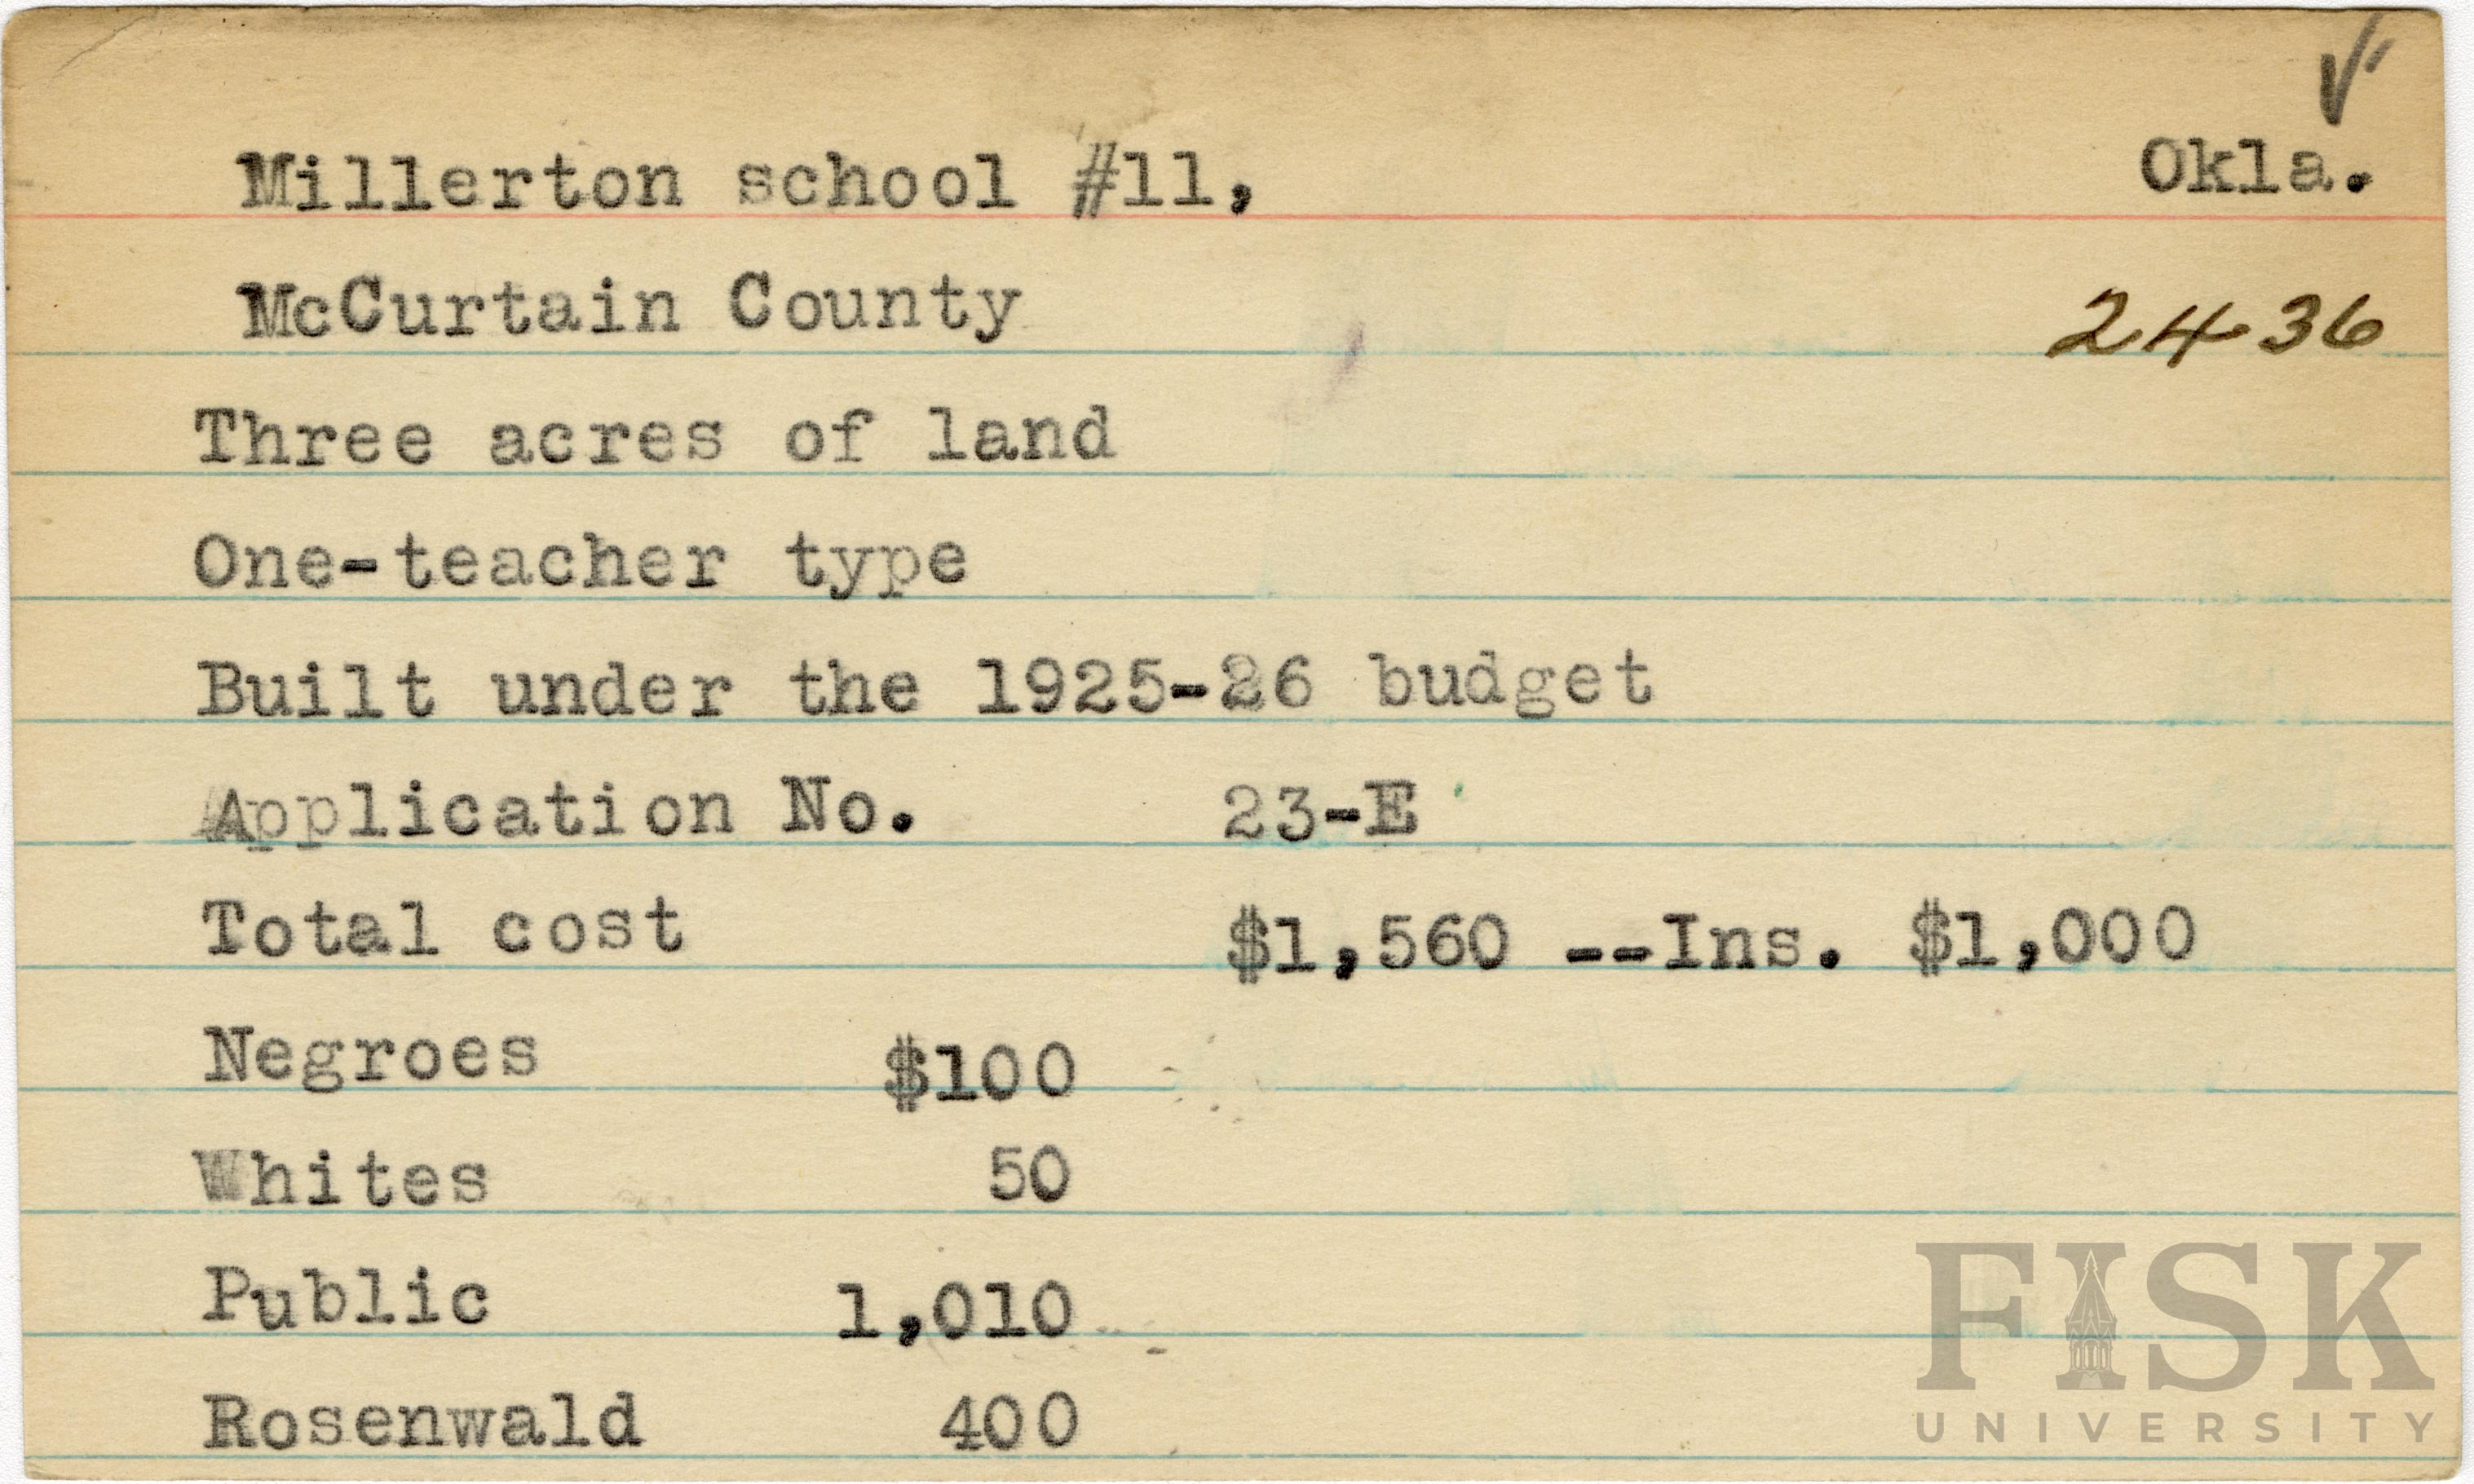 Millerton school #11, Okla.
McCurtain County 2436
Three acres of land
One-teacher type
Built under the 1925-26 budget
Application No. 23-E
Total cost $1,560 --Ins. $1,000
Negroes $100
Whites 50
Public 1,010
Rosenwald 400
FISK
UNIVERSITY